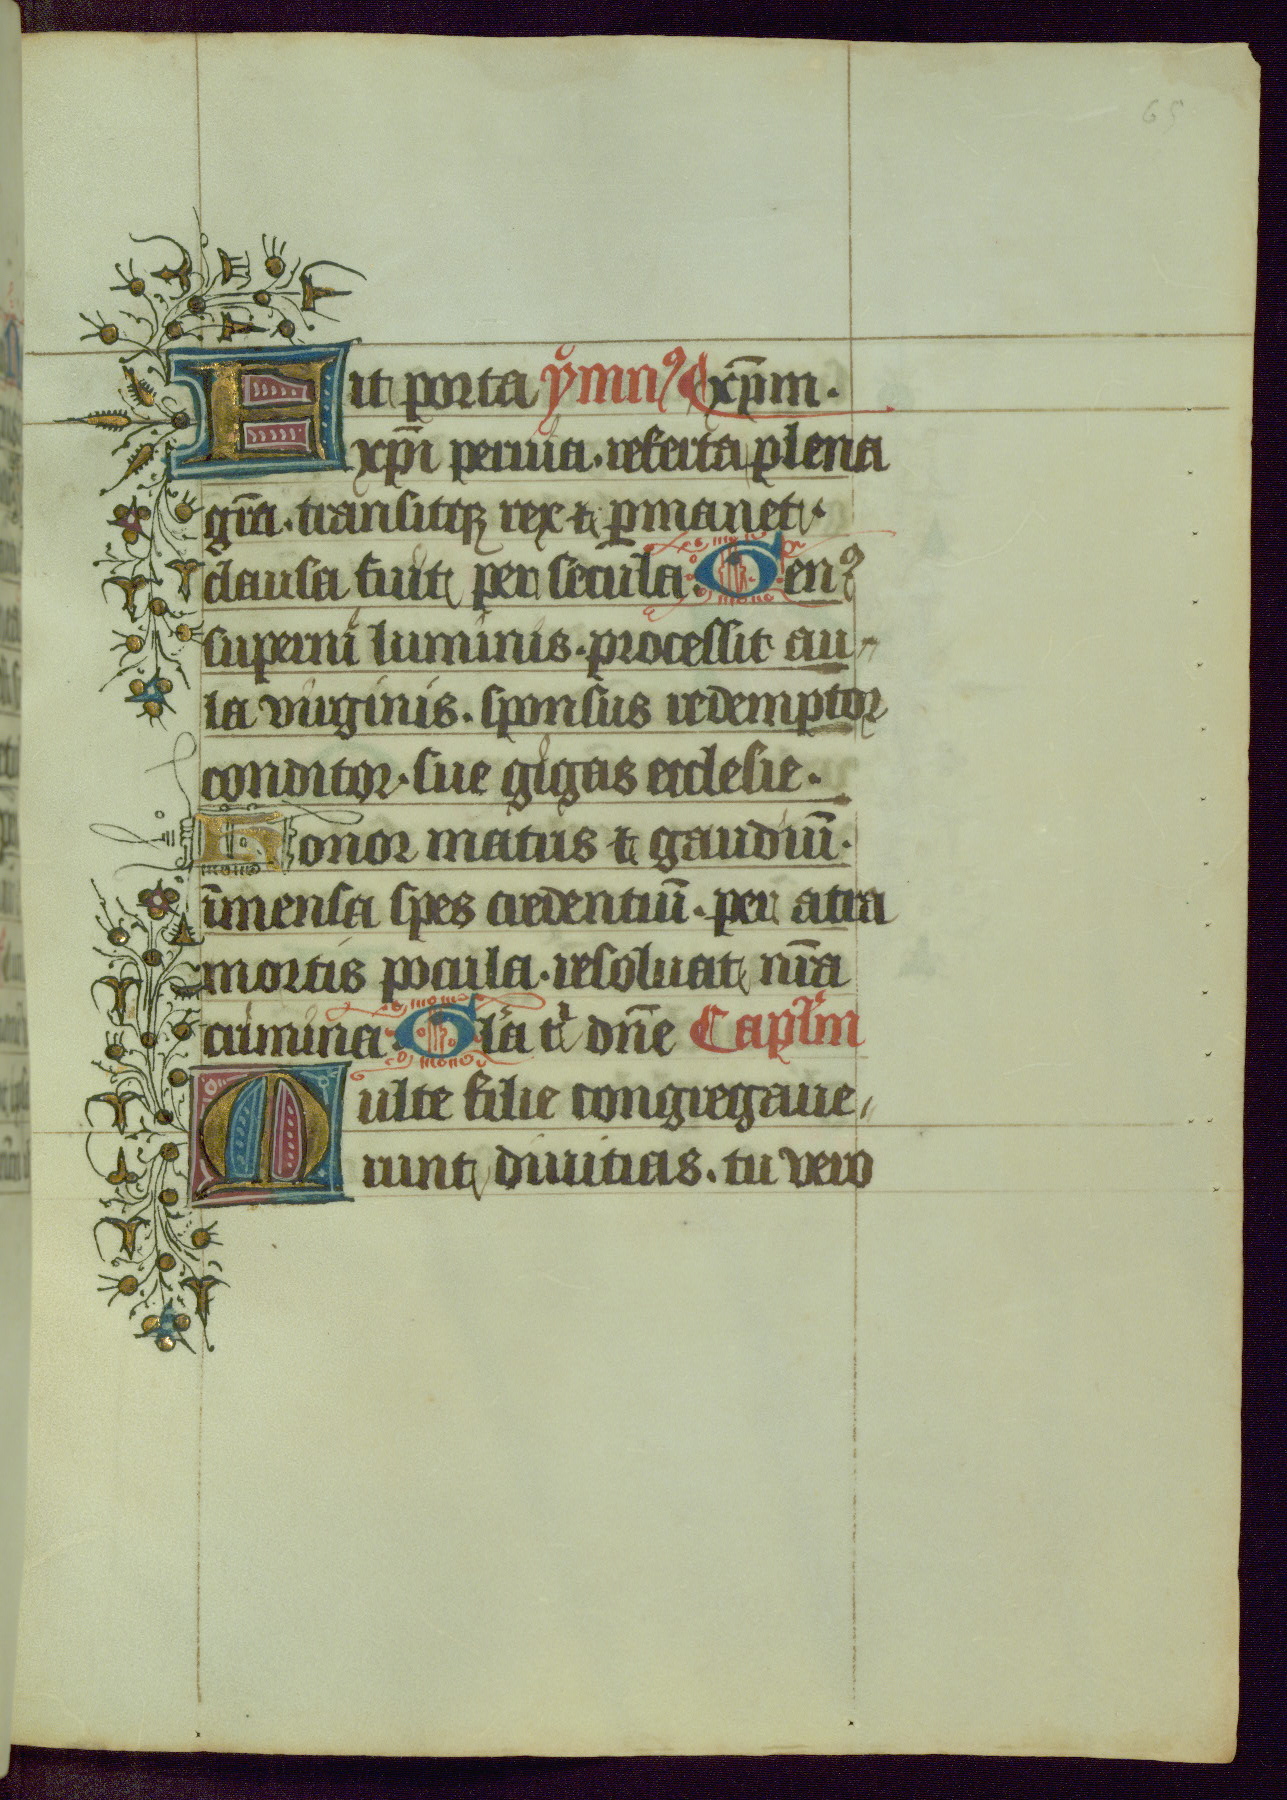 65
Fit porta ymnꝰ xp̄m.
xp̄i peruia. referta plena
gr̄a. transitqꝫ rex ⁊ ꝑmanet
clausa fuit per secula. Genꝰ
superni luminis. processit au-
la virginis. sponsus redemptor
conditor. sue gigas ecclesie.
Honor matris ⁊ gaudiū.
īmensa spes credentiū. per atra
mortis pocula. resoluat nr̄a
crimina. Gl̄a t¹ dn̄e Capl̄m
Multe filie congregaue-
runt diuitias. tu vero